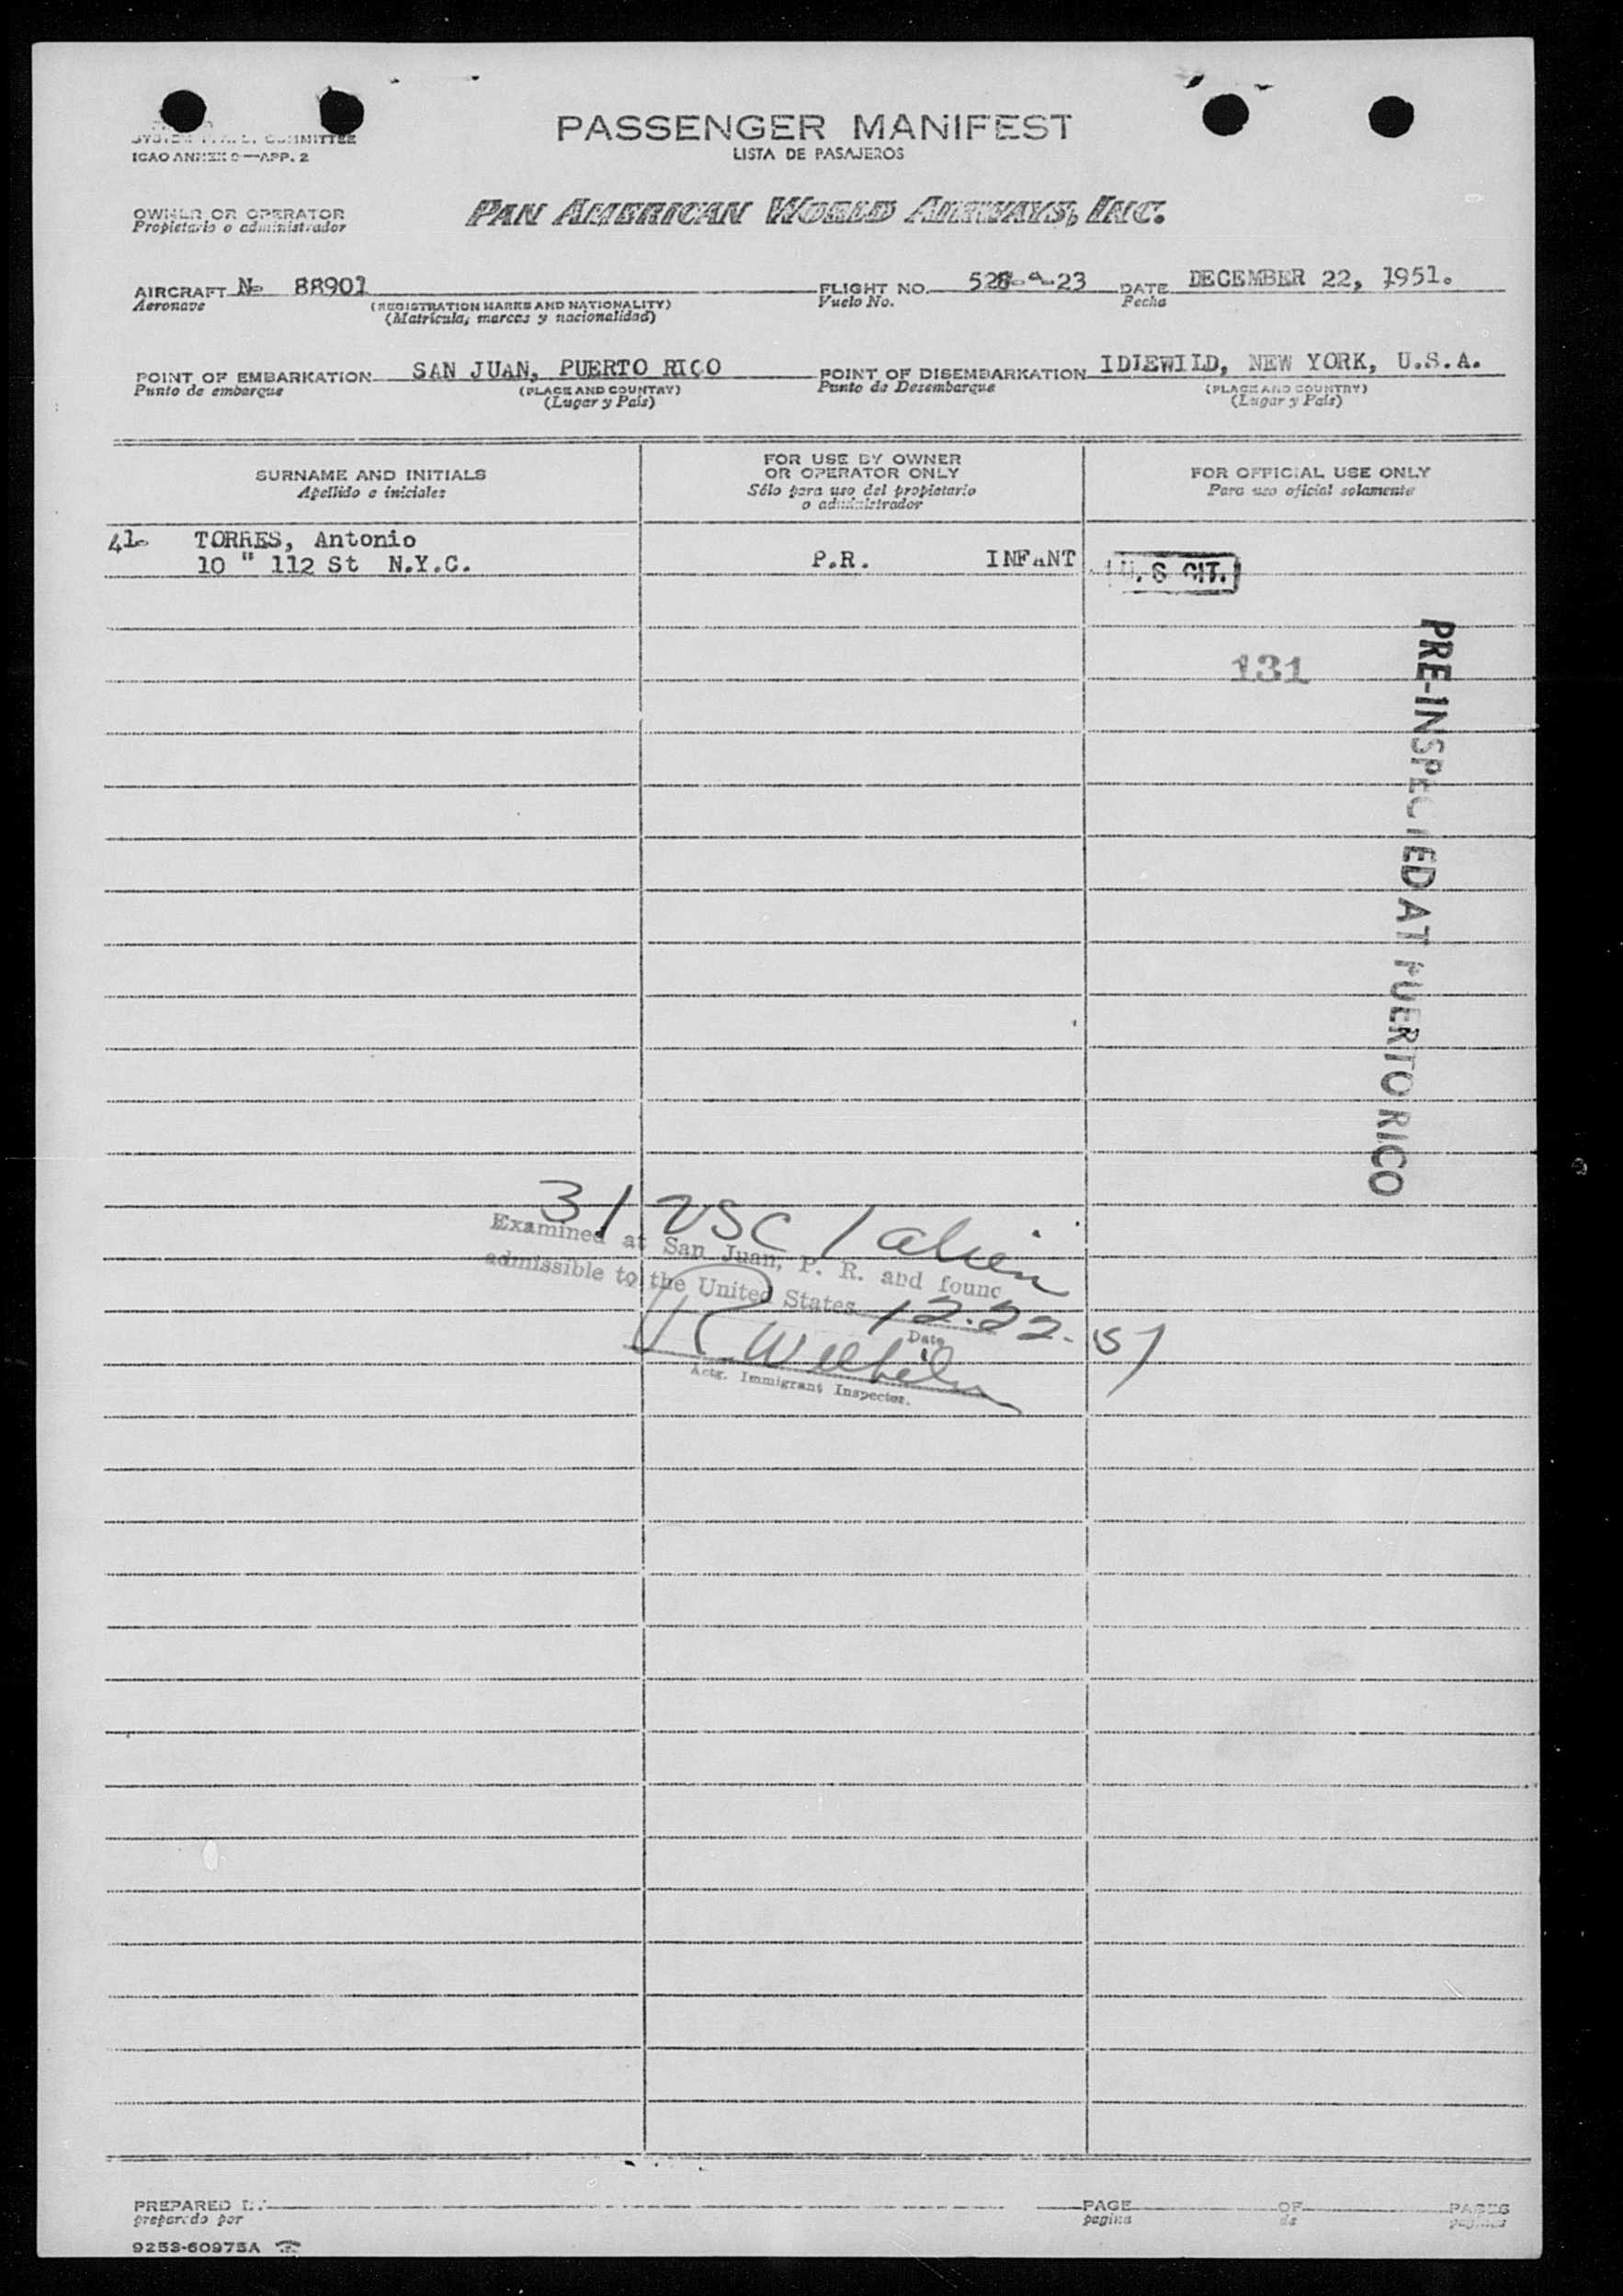 SYSTEM F.A.L. COMMITTEE
ICAO ANNEX 9—APP. 2
PASSENGER MANIFEST
LISTA DE PASAJEROS
OWNER OR OPERATOR
Propietario o administrador
PAN AMERICAN WORLD AIRWAYS, INC.
AIRCRAFT No 88901
Aeronave
(REGISTRATION MARKS AND NATIONALITY)
(Matrícula, marcas y nacionalidad)
FLIGHT NO. 528-A-23
Vuelo No.
DATE DECEMBER 22, 1951.
Fecha
POINT OF EMBARKATION SAN JUAN, PUERTO RICO
Punto de embarque
(PLACE AND COUNTRY)
(Lugar y País)
POINT OF DISEMBARKATION IDLEWILD, NEW YORK, U.S.A.
Punto de Desembarque
(PLACE AND COUNTRY)
(Lugar y País)
SURNAME AND INITIALS
Apellido e iniciales
FOR USE BY OWNER
OR OPERATOR ONLY
Sólo para uso del propietario
o administrador
FOR OFFICIAL USE ONLY
Para uso oficial solamente
41. TORRES, Antonio
10 " 112 St N.Y.C. P.R. INFANT U. S CIT.
131
PRE-INSPECTED AT PUERTO RICO
31 USC 1 alien
Examined at San Juan, P. R. and found
admissible to the United States 12-22-51
Date
Actg. Immigrant Inspector.
PREPARED BY
preparado por
PAGE OF PAGES
pagina de paginas
9253-60975A